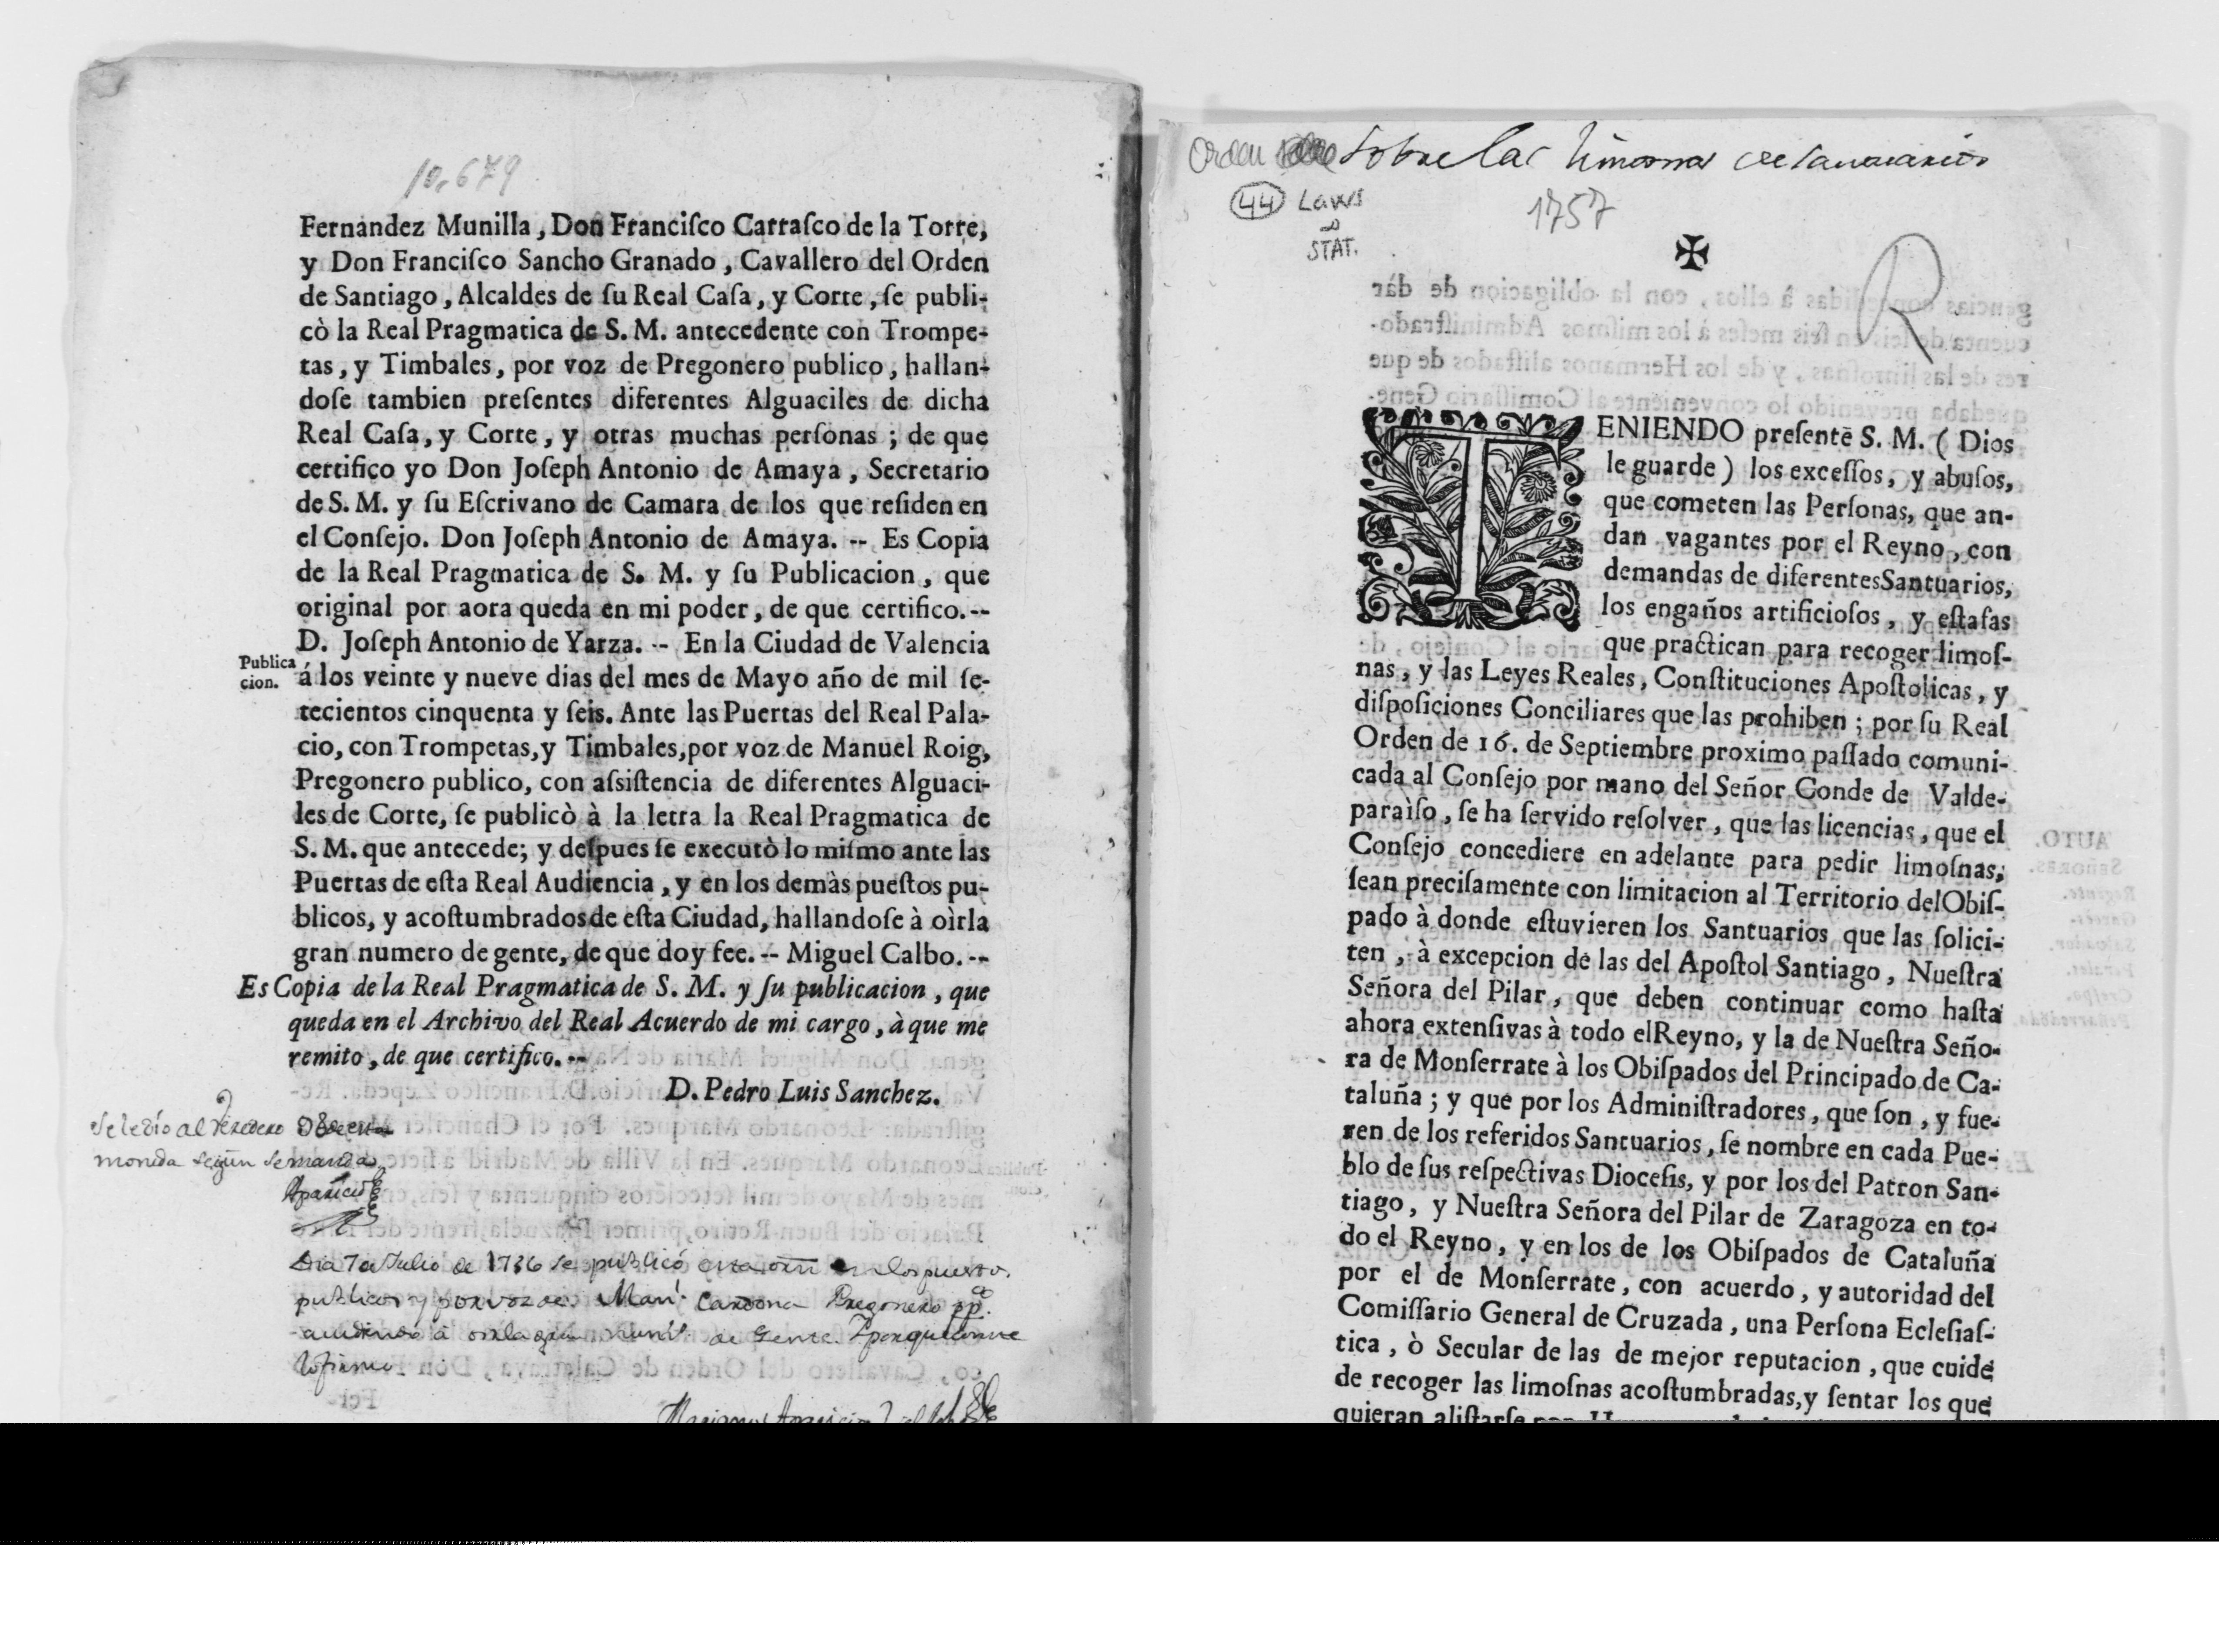 10.679
Fernandez Munilla, Don Franciſco Carraſco de la Torre,
y Don Franciſco Sancho Granado, Cavallero del Orden
de Santiago, Alcaldes de ſu Real Caſa, y Corte, ſe publi-
cò la Real Pragmatica de S. M. antecedente con Trompe-
tas, y Timbales, por voz de Pregonero publico, hallan-
doſe tambien preſentes diferentes Alguaciles de dicha
Real Caſa, y Corte, y otras muchas perſonas; de que
certifico yo Don Joſeph Antonio de Amaya, Secretario
de S. M. y ſu Eſcrivano de Camara de los que reſiden en
el Conſejo. Don Joſeph Antonio de Amaya. -- Es Copia
de la Real Pragmatica de S. M. y ſu Publicacion, que
original por aora queda en mi poder, de que certifico. --
D. Joſeph Antonio de Yarza. -- En la Ciudad de Valencia
Publica
cion.
á los veinte y nueve dias del mes de Mayo año de mil ſe-
tecientos cinquenta y ſeis. Ante las Puertas del Real Pala-
cio, con Trompetas, y Timbales, por voz de Manuel Roig,
Pregonero publico, con aſsiſtencia de diferentes Alguaci-
les de Corte, ſe publicò à la letra la Real Pragmatica de
S. M. que antecede; y deſpues ſe executò lo miſmo ante las
Puertas de eſta Real Audiencia, y en los demàs pueſtos pu-
blicos, y acoſtumbrados de eſta Ciudad, hallandoſe à oìrla
gran numero de gente, de que doy fee. -- Miguel Calbo. --
Es Copia de la Real Pragmatica de S. M. y ſu publicacion, que
queda en el Archivo del Real Acuerdo de mi cargo, à que me
remito, de que certifico. --
D. Pedro Luis Sanchez.
Se le dio al Veredero
moneda segun se manda
Aparicio
Dia 7 de Julio de se publicó en los puestos
publicos y por voz de Cardona Pregonero
de Gente.
lo firmo
Orden sobre las limosnas de santuarios
44 Laws
&
STAT.
1757
✠
R
TENIENDO preſente S. M. (Dios
le guarde) los exceſſos, y abuſos,
que cometen las Perſonas, que an-
dan vagantes por el Reyno, con
demandas de diferentes Santuarios,
los engaños artificioſos, y eſtafas
que practican para recoger limoſ-
nas, y las Leyes Reales, Conſtituciones Apoſtolicas, y
diſpoſiciones Conciliares que las prohiben; por ſu Real
Orden de 16. de Septiembre proximo paſſado comuni-
cada al Conſejo por mano del Señor Conde de Valde-
paraìſo, ſe ha ſervido reſolver, que las licencias, que el
Conſejo concediere en adelante para pedir limoſnas,
ſean preciſamente con limitacion al Territorio del Obiſ-
pado à donde eſtuvieren los Santuarios que las ſolici-
ten, à excepcion de las del Apoſtol Santiago, Nueſtra
Señora del Pilar, que deben continuar como haſta
ahora extenſivas à todo el Reyno, y la de Nueſtra Seño-
ra de Monſerrate à los Obiſpados del Principado de Ca-
taluña; y que por los Adminiſtradores, que ſon, y fue-
ren de los referidos Santuarios, ſe nombre en cada Pue-
blo de ſus reſpectivas Dioceſis, y por los del Patron San-
tiago, y Nueſtra Señora del Pilar de Zaragoza en to-
do el Reyno, y en los de los Obiſpados de Cataluña
por el de Monſerrate, con acuerdo, y autoridad del
Comiſſario General de Cruzada, una Perſona Ecleſiaſ-
tica, ò Secular de las de mejor reputacion, que cuide
de recoger las limoſnas acoſtumbradas, y ſentar los que
quieran aliſtarſe